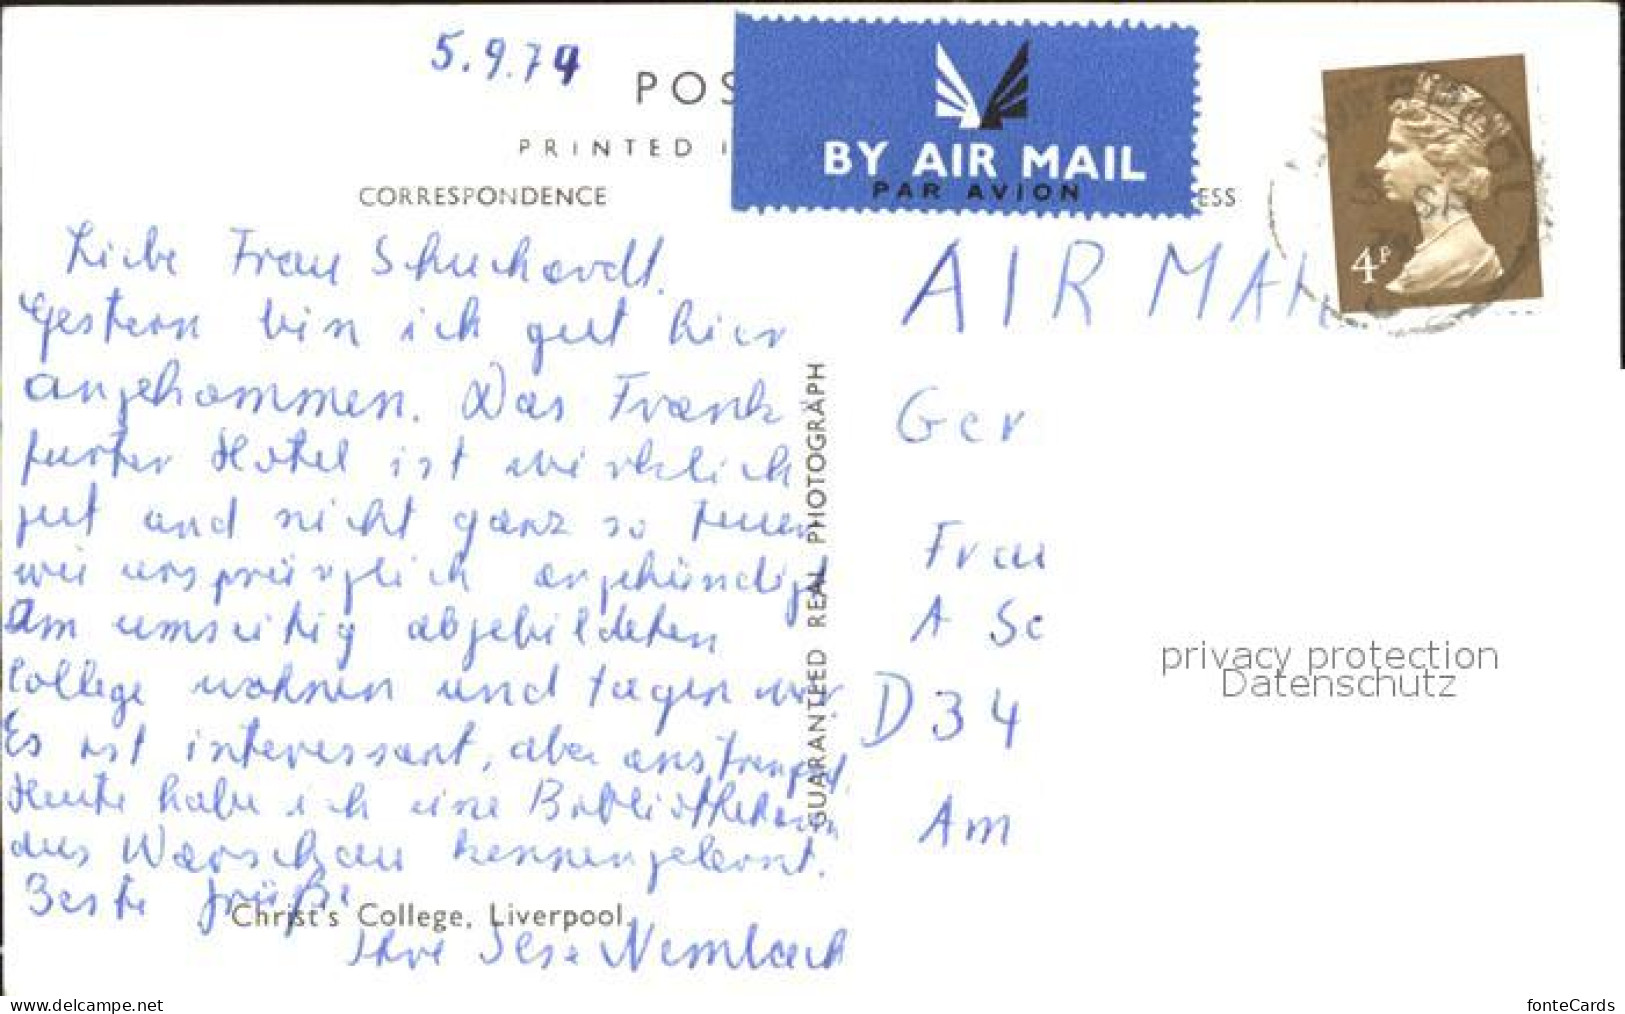 5.9.74
POS
PRINTED I
BY AIR MAIL
PAR AVION
CORRESPONDENCE
ESS
4P
Liebe Frau Schuchardt.
Gestern bin ich gut hier
angekommen. Das Frank
furter Hotel ist wirklich
gut und nicht ganz so teuer
wie ursprünglich angekündigt
Am umseitig abgebildeten
College wohnen und tagen wir.
Es ist interessant, aber anstrengd.
Heute habe ich eine Bibliothekarin
aus Warschau kennengelernt.
Beste Grüße
Ihre Ilse Nimbach
Christ's College, Liverpool.
GUARANTEED REAL PHOTOGRAPH
AIR MAIL
Ger
Frau
A Sc
D 34
Am
privacy protection
Datenschutz
www.delcampe.net
fonteCards